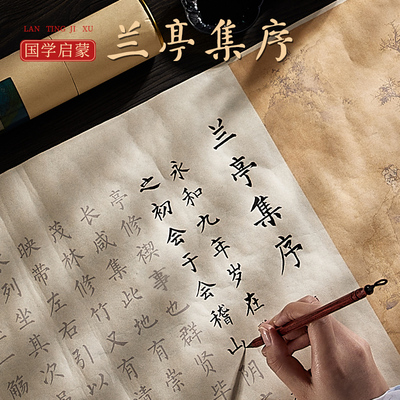 LAN TING JI XU
国学启蒙
兰亭集序
兰亭集序
永和九年岁在
之初会于会稽山阴
亭修禊事也群贤毕
长咸集此地有崇
茂林修竹又有清
映带左右引以
列坐其次虽
觞